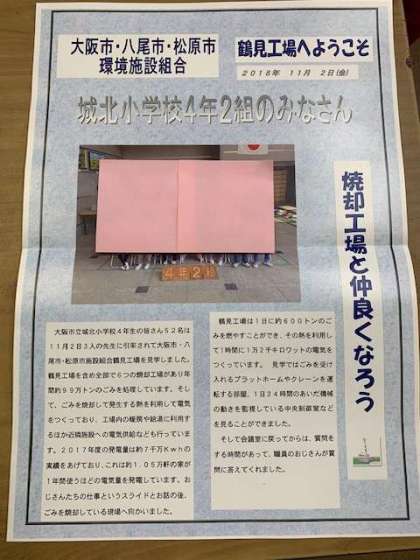 大阪市・八尾市・松原市
環境施設組合
鶴見工場へようこそ
2018年 11月 2日(金)
城北小学校4年2組のみなさん
4年2組
焼却工場と仲良くなろう
大阪市立城北小学校4年生の皆さん52名は
11月2日3人の先生に引率されて大阪市・八
尾市・松原市施設組合鶴見工場を見学しました。
鶴見工場を含め全部で6つの焼却工場があり年
間約99万トンのごみを処理しています。そし
て、ごみを焼却して発生する熱を利用して電気
をつくっており、工場内の暖房や給湯に利用す
るほか近隣施設への電気供給なども行っていま
す。2017年度の発電量は約7千万Kwhの
実績をあげており、これは約1.05万軒の家が
1年間使うほどの電気量を発電しています。お
じさんたちの仕事というスライドとお話の後、
ごみを焼却している現場へ向かいました。
鶴見工場は1日に約600トンのご
みを燃やすことができ、その熱を利用し
て1時間に1万2千キロワットの電気を
つくっています。見学ではごみを受け
入れるプラットホームやクレーンを運
転する部屋、1日24時間のあいだ機械
の動きを監視している中央制御室など
を見ることができました。
そして会議室に戻ってからは、質問を
する時間があって、職員のおじさんが質
問に答えてくれました。